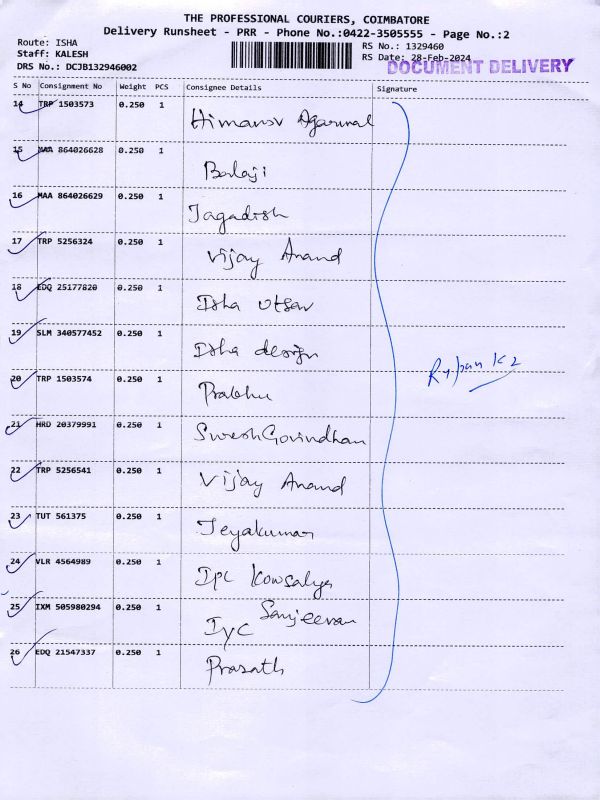 THE PROFESSIONAL COURIERS, COIMBATORE
Delivery Runsheet - PRR - Phone No.:0422-3505555 - Page No.:2
Route: ISHA
Staff: KALESH
DRS No.: DCJB132946002
RS No.: 1329460
RS Date: 28-Feb-2024
DOCUMENT DELIVERY
S No Consignment No Weight PCS Consignee Details Signature
14 TRP 1503573 0.250 1 Himansv Agarwal
15 MAA 864026628 0.250 1 Balaji
16 MAA 864026629 0.250 1 Jagadish
17 TRP 5256324 0.250 1 Vijay Anand
18 EDQ 25177820 0.250 1 Isha Utsav
19 SLM 340577452 0.250 1 Isha design
20 TRP 1503574 0.250 1 Prabhu
21 HRD 20379991 0.250 1 Suresh Govindhan
22 TRP 5256541 0.250 1 Vijay Anand
23 TUT 561375 0.250 1 Jeyakumar
24 VLR 4564989 0.250 1 IPC Kowsalya
25 IXM 505980294 0.250 1 IYC Sanjeevan
26 EDQ 21547337 0.250 1 Prasath